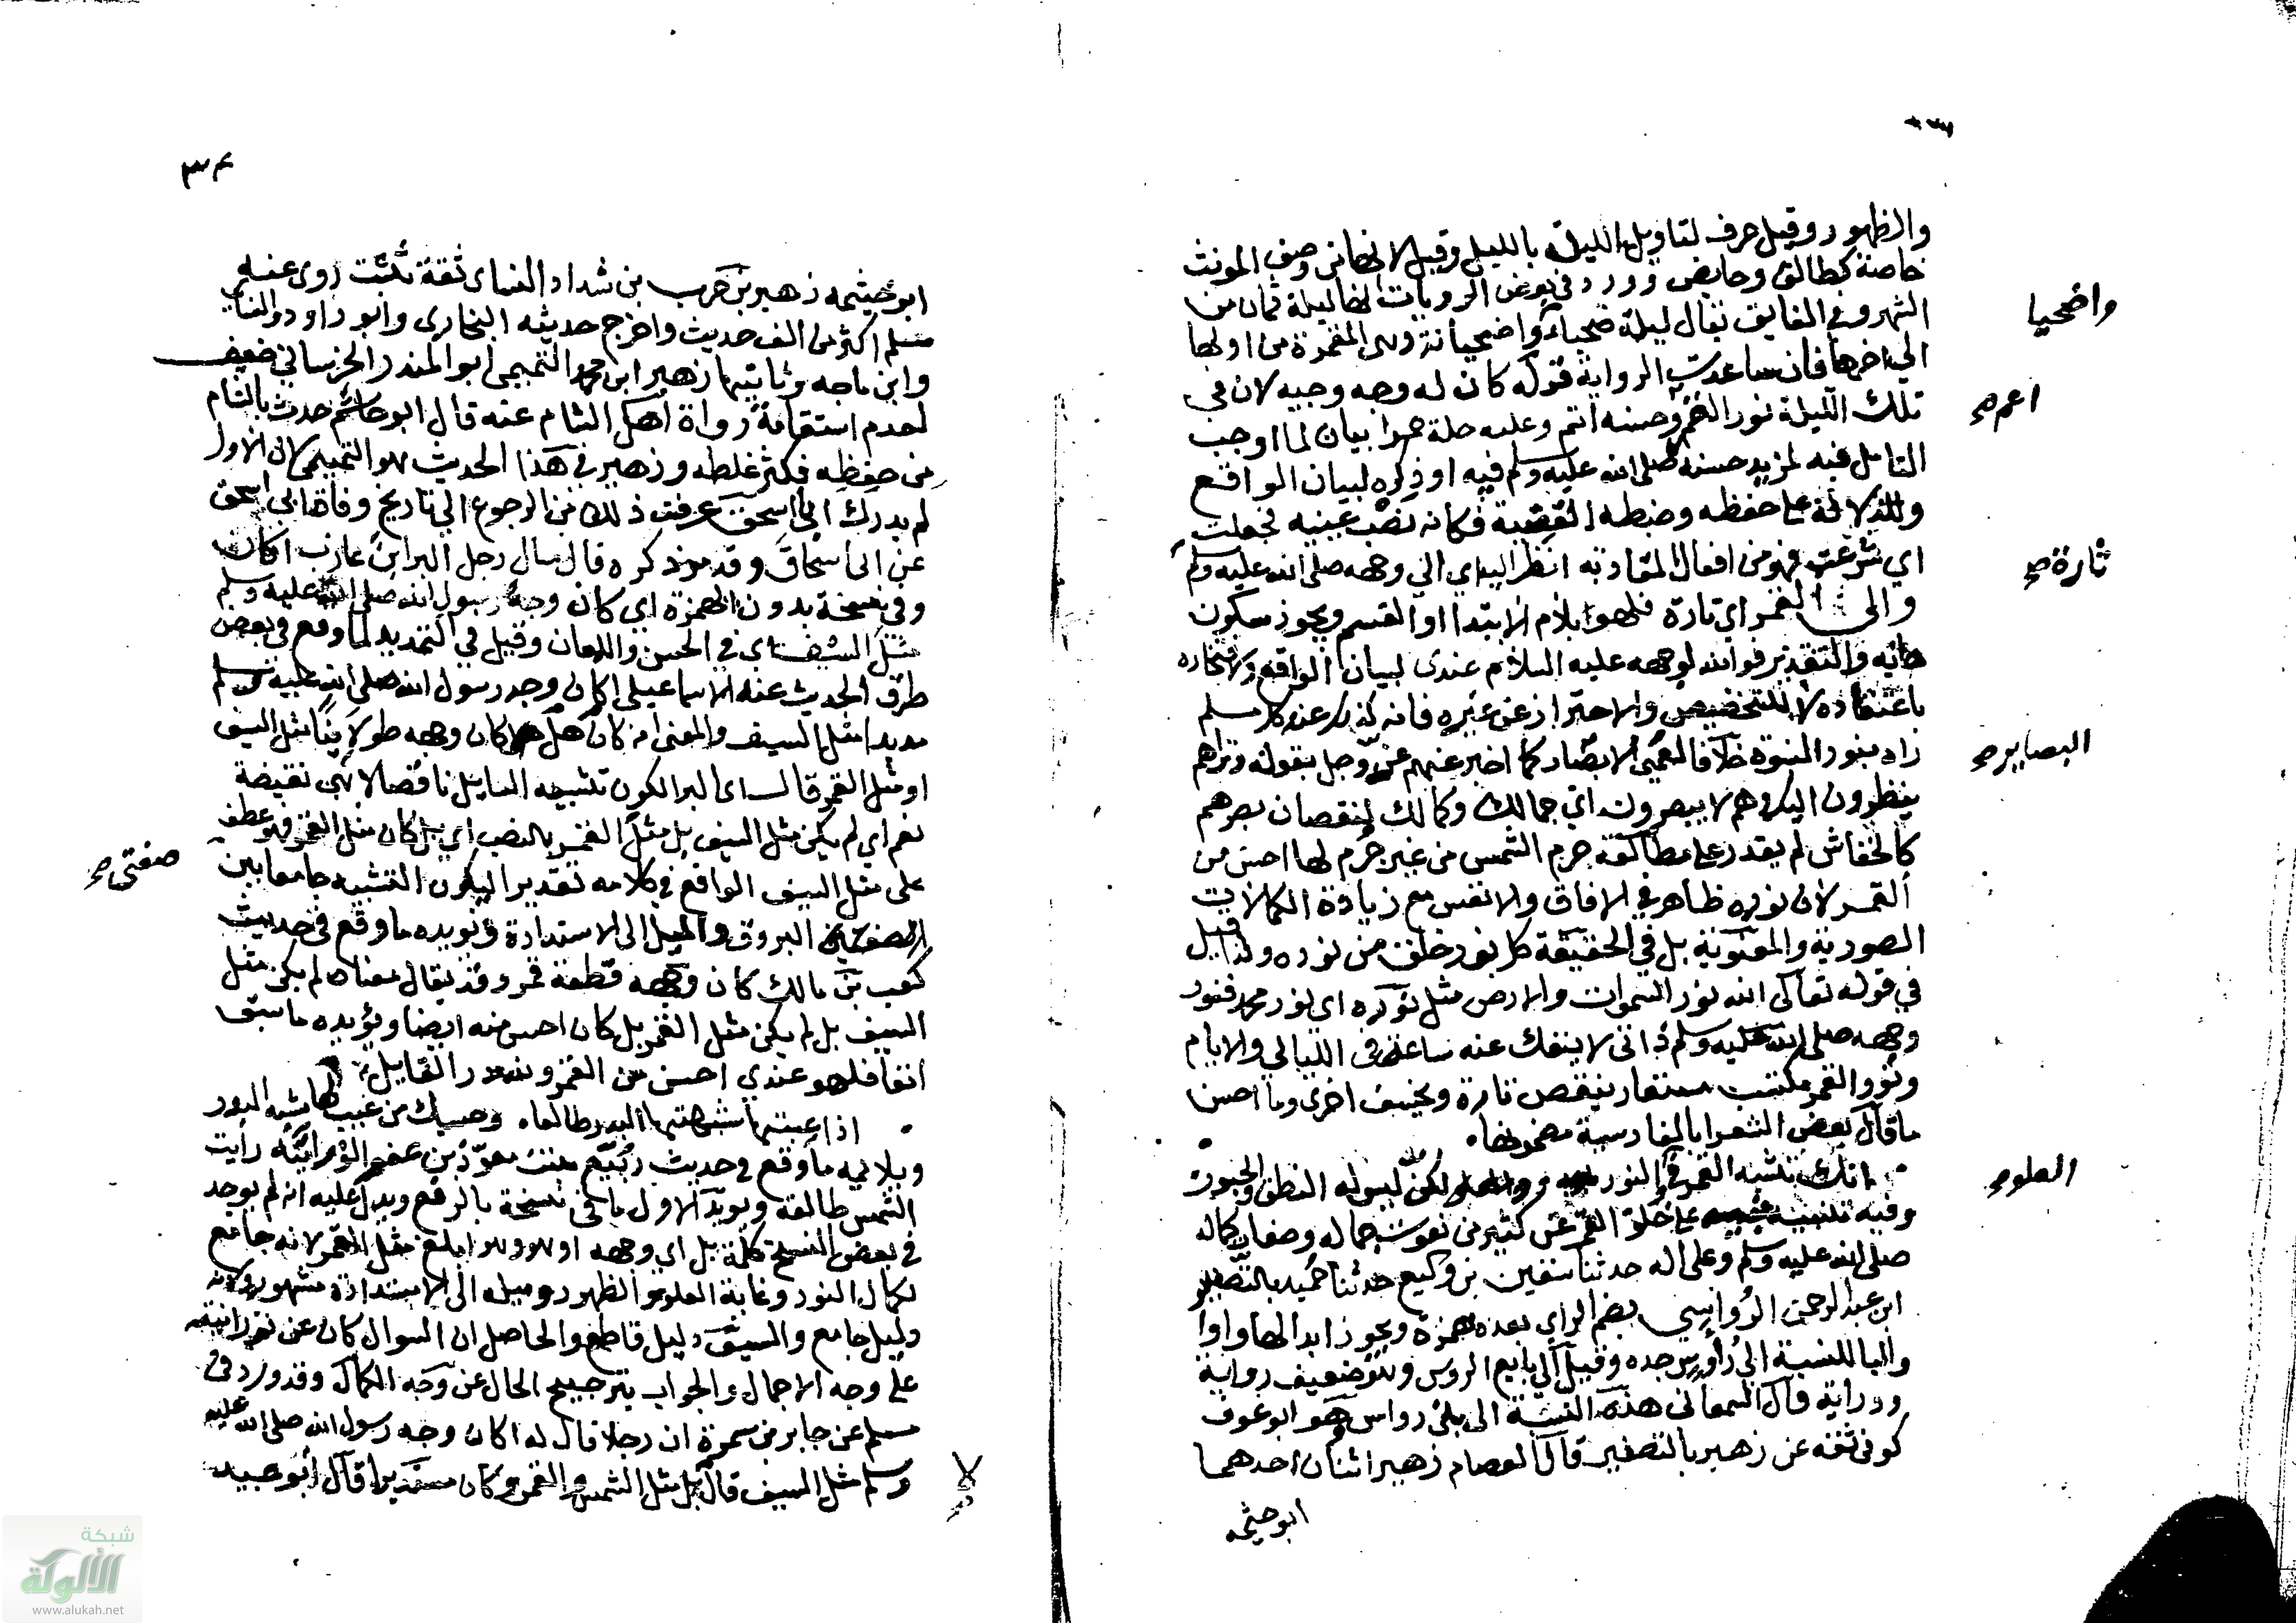 والظهور وقيل حرف لتاويل الليلة بالليل وقيل لانها في وصف المونث
خاصة كطالق وحايض وورد في بعض الروايات انها ليلة ثمان من
الشهر وفي الفايق يقال ليلة ضحياء واضحيانة وهي المقمرة من اولها
واضحيا
الي اخرها فان ساعدت الرواية قوله كان له وجه وجيه لان في
تلك الليلة نور القمر وحسنه اتم وعليه حلة حمرا بيان لما اوجب
اعم صح
التامل فيه لمزيد حسنه صلى الله عليه وسلم فيه او ذكره لبيان الواقع
وللدلالة على حفظه وضبطه القضية فكانه نصب عينيه فجعلت
اي شرعت فهو من افعال المقاربة انظر اليه اي الي وجهه صلى الله عليه وسلم
والى القمر اي تارة فلهو بلام الابتدا او القسم ويجوز سكون
تارة صح
هائه والتقدير فوالله لوجهه عليه السلام عندي لبيان الواقع ولافتخاره
باعتقاده لا للتخصيص والاحتراز عن غيره فانه كذلك عند كل مسلم
راه بنور النبوة خلافا لعمي الابصار كما اخبر عنهم عز وجل بقوله وتراهم
البصاير صح
ينظرون اليك وهم لا يبصرون اي جمالك وكمالك لنقصان بصرهم
كالخفاش لم يقدر على مطالعة جرم الشمس من غير جرم لها احسن من
القمر لان نوره ظاهر في الافاق والانفس مع زيادة الكمالات
الصورية والمعنوية بل في الحقيقة كل نور خلق من نوره ولذا قيل
في قوله تعالى الله نور السموات والارض مثل نوره اي نور محمد فنور
وجهه صلى الله عليه وسلم ذاتي لا ينفك عنه ساعة في الليالي والايام
ونور القمر مكتسب مستعار ينقص تارة ويخسف اخرى وما احسن
ما قال بعض الشعرا بالفارسية مضمونها
انك تشبه القمر في النور لكن ليس له النطق والحبور
العلو صح
وفيه تنبيه على خلو القمر عن كثير من نعوت جماله وصفات كماله
صلى الله عليه وسلم وعلى اله حدثنا سفين بن وكيع حدثنا حميد بالتصغير
ابن عبد الرحمن الرؤاسي بضم الراي بعده همزة ويجوز ابدالها واوا
واليا للنسبة الي رأوس جده وقيل الي بايع الروس وهو ضعيف رواية
ودراية قال السمعاني هذه النسبة الى بني رواس هو ابو عوف
كوفي ثقة عن زهير بالتصغير قال العصام زهير اثنان احدهما
ابو خيثمه
٣٤
ابو خيثمه زهير بن حرب بن شداد النساي ثقة ثبت روى عنه
مسلم اكثر من الف حديث واخرج حديثه البخاري وابو داود والنساي
وابن ماجه وثانيهما زهير ابن محمد التميمي ابو المنذر الخرساني ضعيف
لعدم استقامة رواة اهل الشام عنه قال ابو حاتم حدث بالشام
من حفظه فكثر غلطه وزهير في هذا الحديث هو التميمي لان الاول
لم يدرك ابي اسحق عرفت ذلك من الرجوع الي تاريخ وفاة ابي اسحق
عن ابي اسحاق وقد مر ذكره قال سال رجل البرا ابن عازب اكان
وفي نسخة بدون الهمزة اي كان وجه رسول الله صلى الله عليه وسلم
مثل السيف اي في الحسن واللمعان وقيل في التمديد لما وقع في بعض
طرق الحديث عند الاسماعيلي اكان وجه رسول الله صلى الله عليه وسلم
مديدا مثل السيف والمعنى انه كان هل كان وجهه طولانيا مثل السيف
او مثل القمر قال لا اي البرا لكون تشبيه السايل ناقصا لا هي نقيضة
نعم اي لم يكن مثل السيف بل مثل القمر بالنصب اي بل كان مثل القمر فهو عطف
على مثل السيف الواقع في كلامه تقديرا ليكون التشبيه جامعا بين
صفتي صح
الصفتين البروق والميل الى الاستدارة ويويده ما وقع في حديث
كعب بن مالك كان وجهه قطعة قمر وقد يقال معناه لم يكن مثل
السيف بل لم يكن مثل القمر بل كان احسن منه ايضا ويؤيده ما سبق
انفا فلهو عندي احسن من القمر ولله در القايل
اذا عبتها شبهتها البدر طالعا وحسبك من عيب لها شبه البدر
ويلايمه ما وقع في حديث ربيع بنت معوذ بن عفرا لو رايته رايت
الشمس طالعة ويويد الاول ما في نسخة بالرفع ويدل عليه انه لم يوجد
في بعض النسخ كلمة بل اي وجهه او هو وهو ابلغ مثل القمر لانه جامع
لكمال النور وغاية العلو والظهور وميله الى الاستدارة مشهور ولانه
دليل جامع والسيف دليل قاطع والحاصل ان السوال كان عن نورانيته
على وجه الاجمال والجواب بترجيح الحال عن وجه الكمال وقد ورد في
مسلم عن جابر بن سمرة ان رجلا قال له اكان وجه رسول الله صلى الله عليه
وسلم مثل السيف قال بل مثل الشمس والقمر وكان مستديرا قال ابو عبيد
شبكة
الألوكة
www.alukah.net